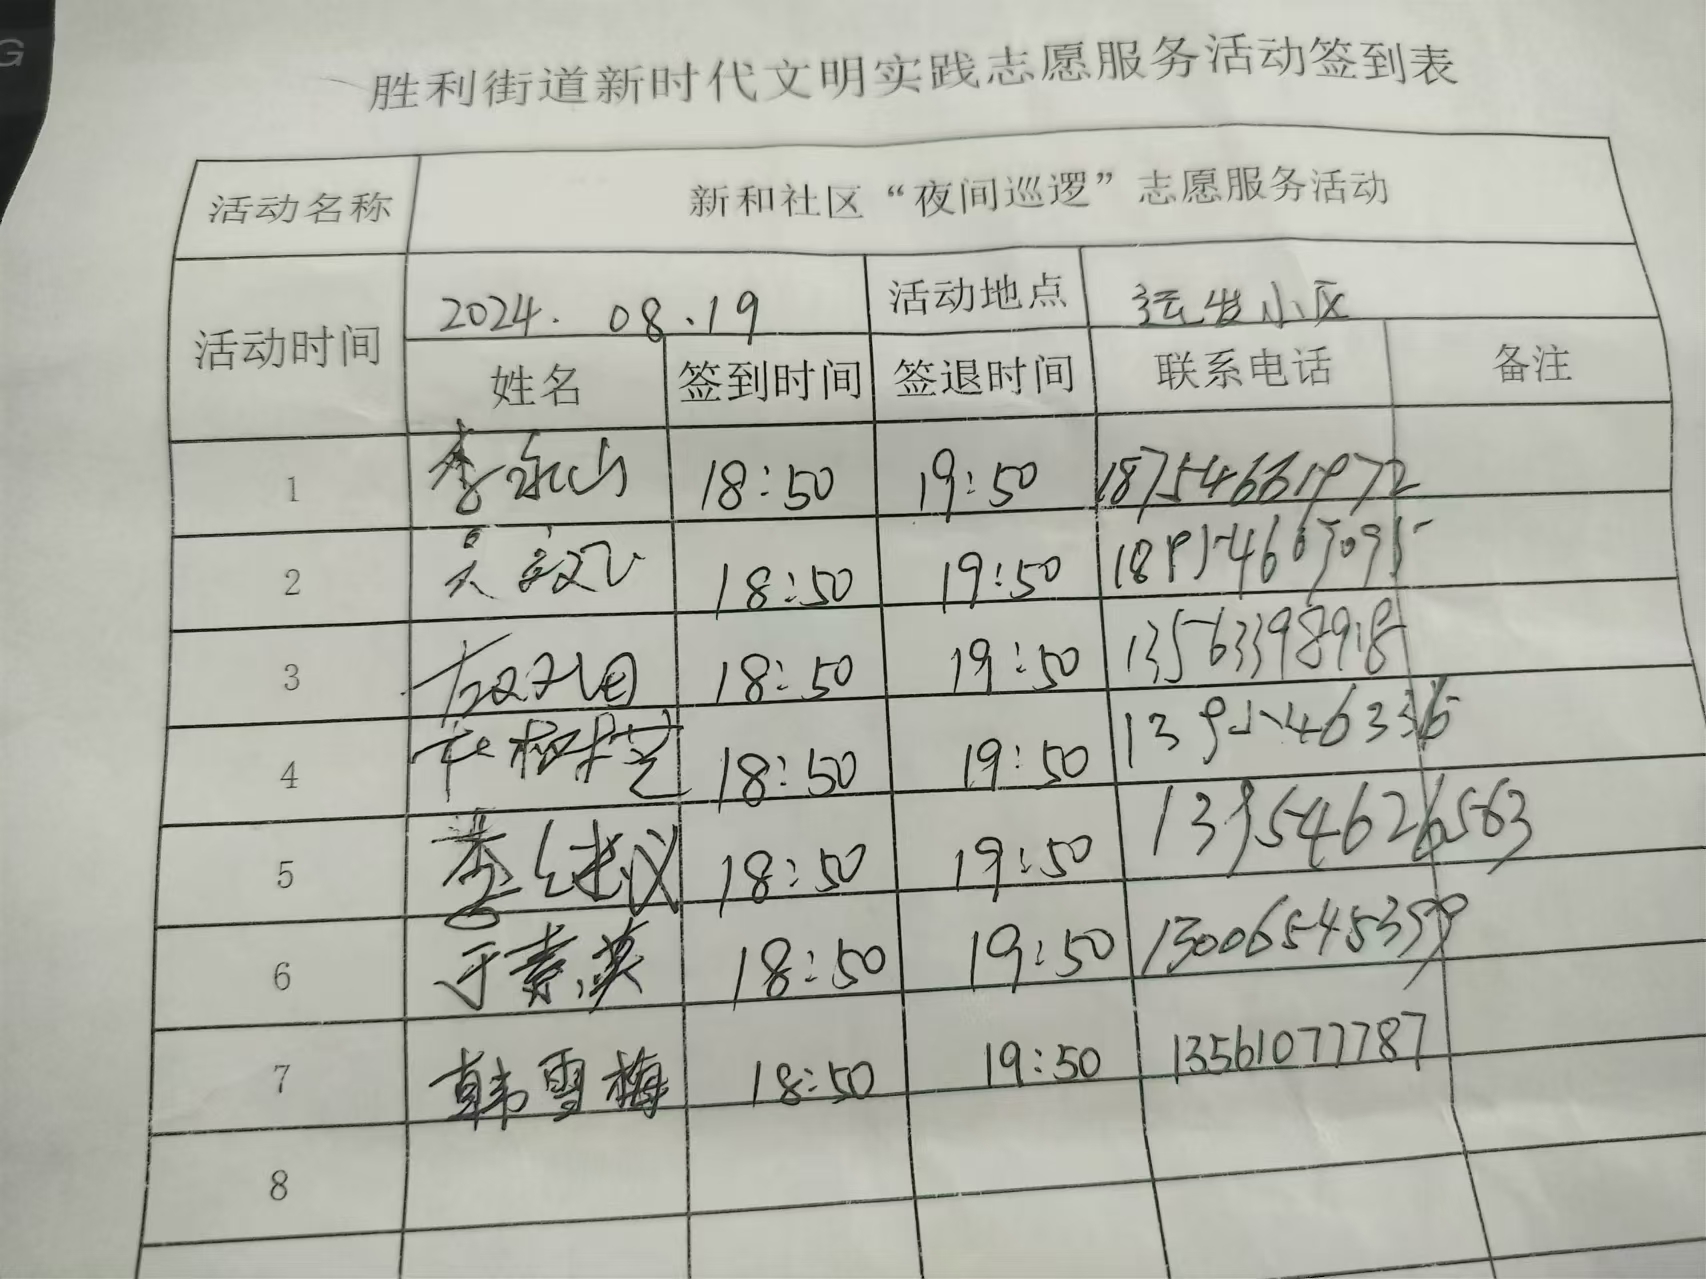 G
胜利街道新时代文明实践志愿服务活动签到表
活动名称 新和社区“夜间巡逻”志愿服务活动
活动时间 2024.08.19 活动地点 运发小区
姓名 签到时间 签退时间 联系电话 备注
1 李永山 18:50 19:50 18754661972
2 18:50 19:50
3 18:50 19:50 13563398918
4 18:50 19:50
5 18:50 19:50 13954626563
6 于素英 18:50 19:50 13006545399
7 韩雪梅 18:50 19:50 13561077787
8